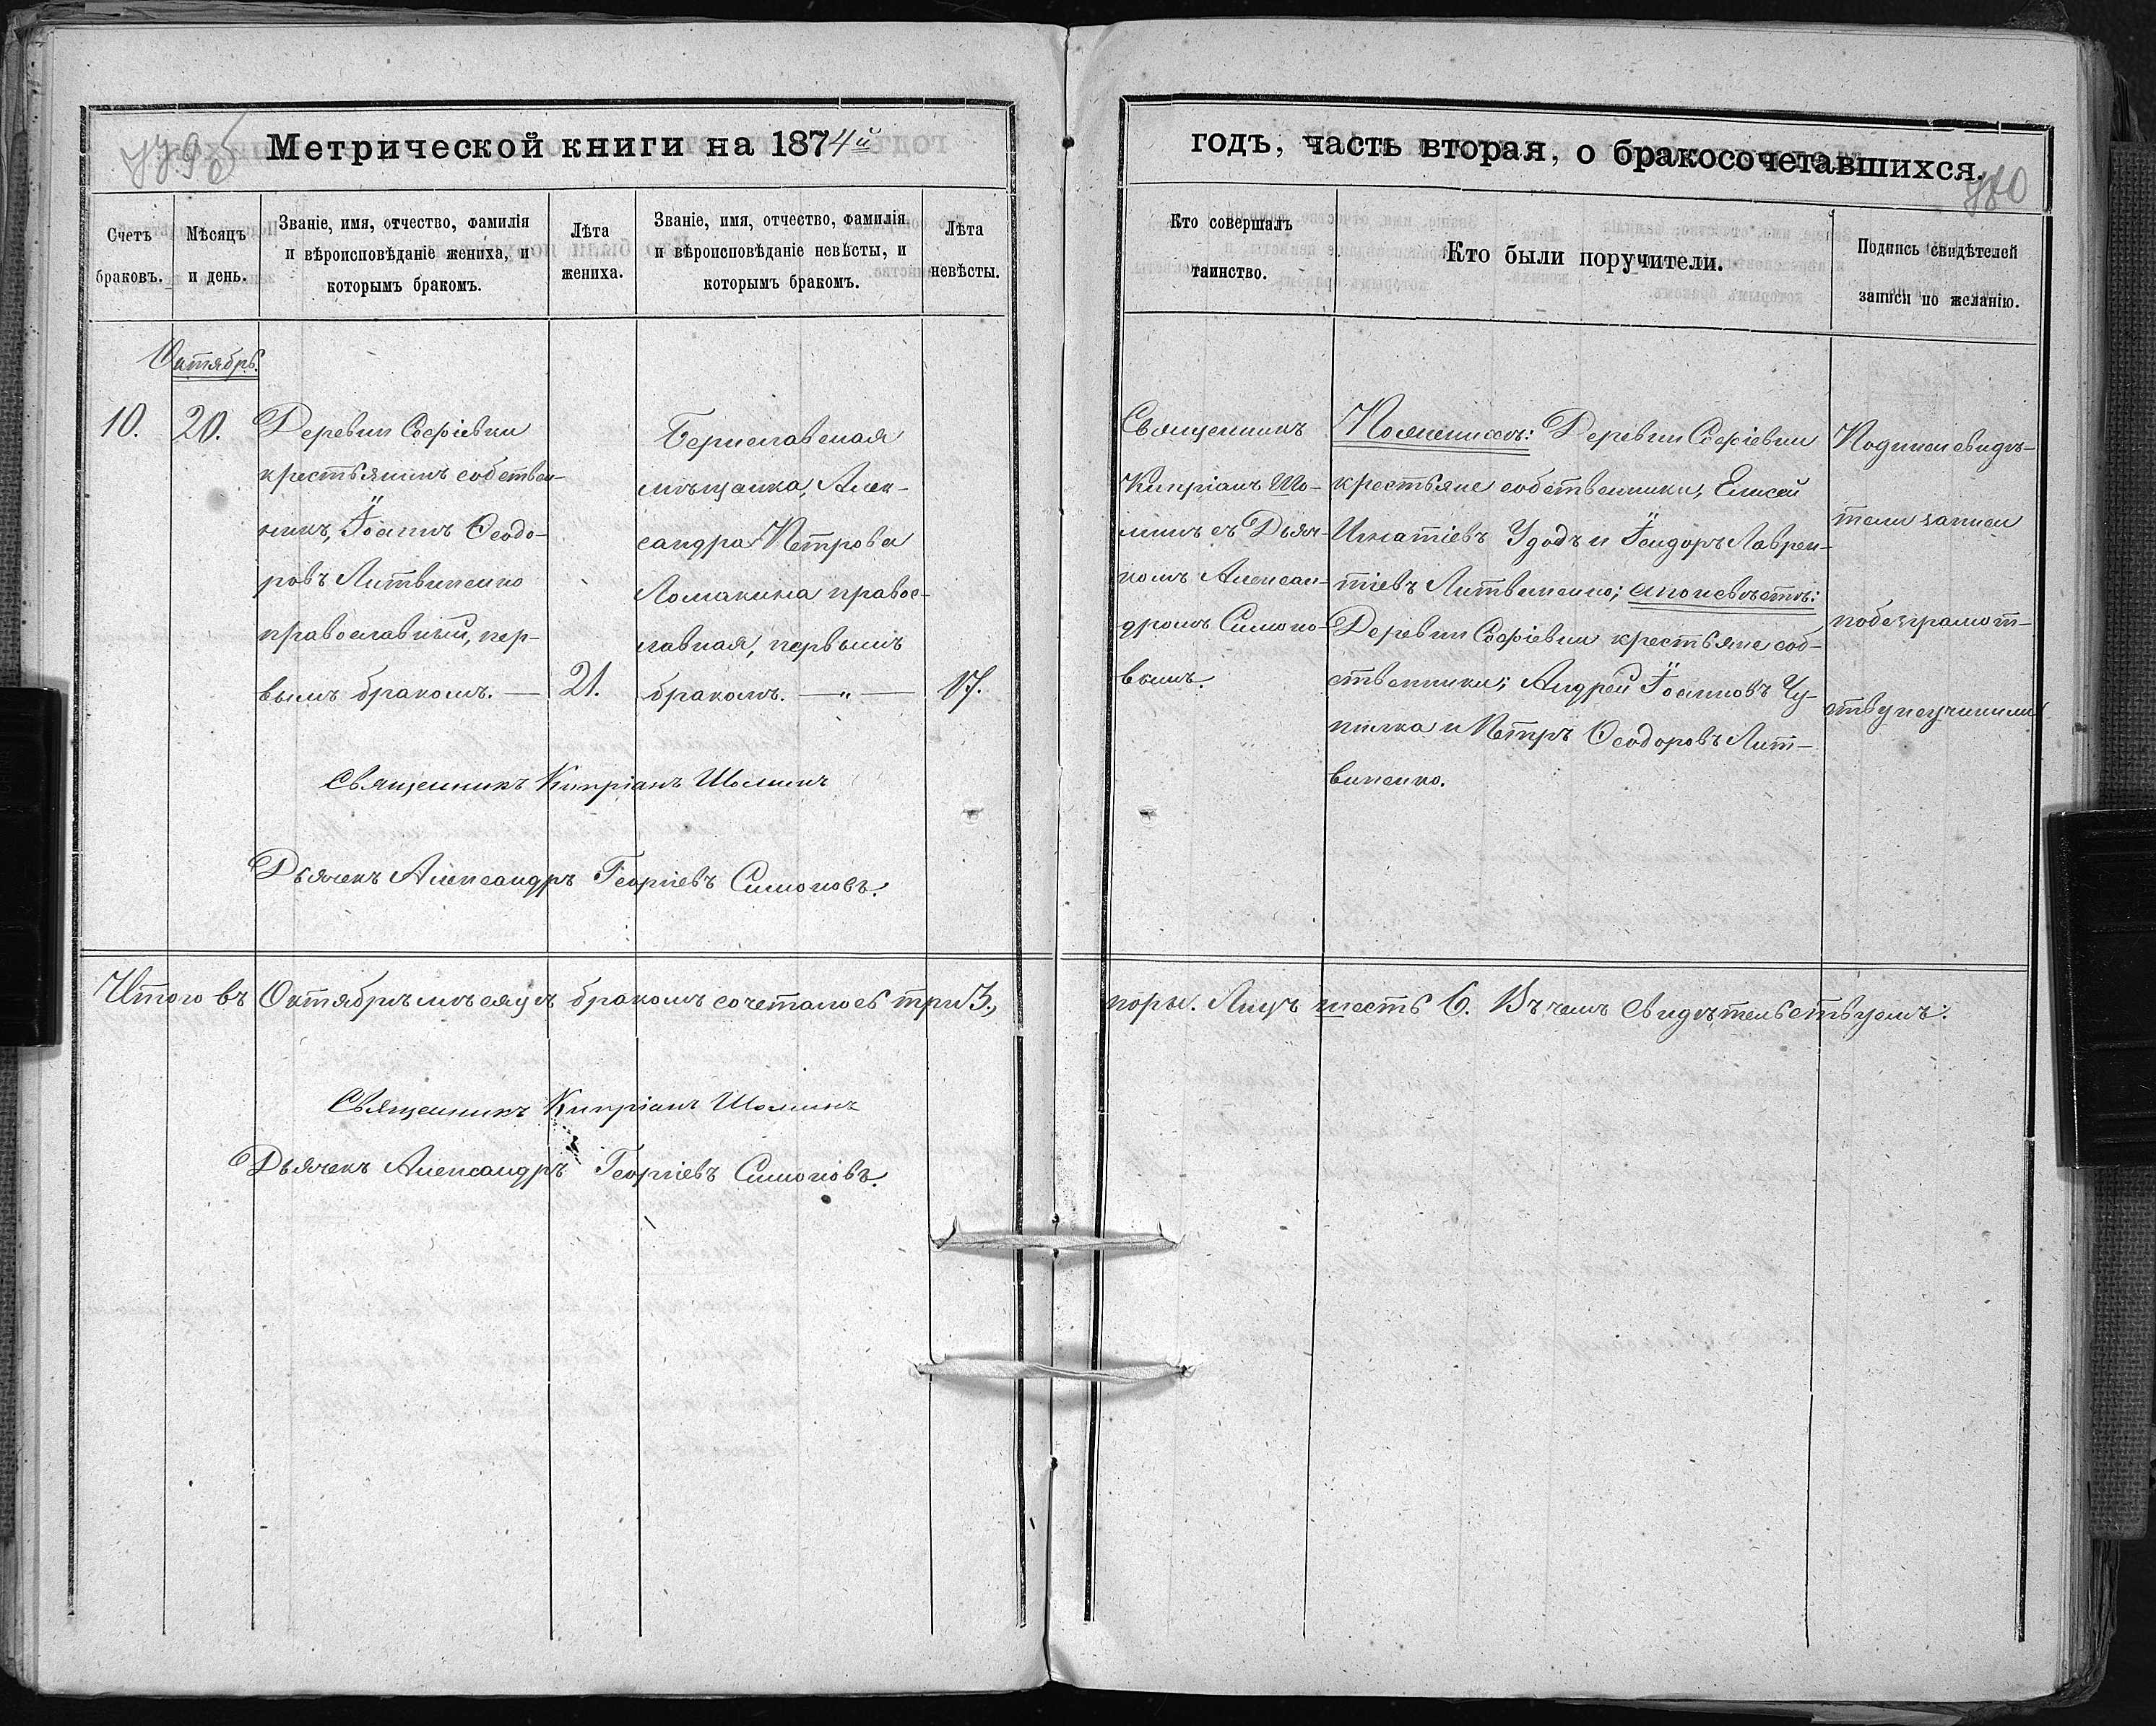 Метрической книги на 1874й
годъ, часть вторая, о бракосочетавшихся.
Счетъ браковъ.
Мѣсяцъ и день.
Званіе, имя, отчество, фамилія
и вѣроисповѣданіе жениха, и
которымъ бракомъ.
Лѣта
жениха.
Званіе, имя, отчество, фамилія
и вѣроисповѣданіе невѣсты, и
которымъ бракомъ.
Лѣта
невѣсты.
Кто совершалъ
таинство.
Кто были поручители.
Подпись свидѣтелей
записи по желанію.
Октябрь.
10.
20.
Деревни Софіевки
крестьянинъ собствен-
никъ, Іоаннъ Ѳеодо-
ровъ Литвиненко
православный, пер-
вымъ бракомъ. —
21.
Бериславская
мѣщанка, Алек-
сандра Петрова
Ломакина правос-
лавная, первымъ
бракомъ. — „ —
17.
Священникъ
Кипріанъ Шо-
минъ съ Дьяч-
комъ Алексан-
дромъ Симоно-
вымъ.
По женихѣ: Деревни Софіевки
крестьяне собственники, Елисей
Игнатіевъ Удодъ и Ісидоръ Лаврен-
тіевъ Литвиненко; а по невѣстѣ:
Деревни Софіевки крестьяне соб-
ственники; Андрей Іоанновъ Чу-
пилка и Петръ Ѳеодоровъ Лит-
виненко.
Подписи свидѣ-
тели записи
по безграмот-
ству не учинили
Священникъ Кипріанъ Шоминъ
Дьячекъ Александръ Георгіевъ Симоновъ.
Итого въ Октябрѣ мѣсяцѣ бракомъ сочеталось три 3.,
поры. Лицъ шесть 6. Въ чемъ свидѣтельствуемъ:
Священникъ Кипріанъ Шоминъ
Дьячекъ Александръ Георгіевъ Симоновъ.